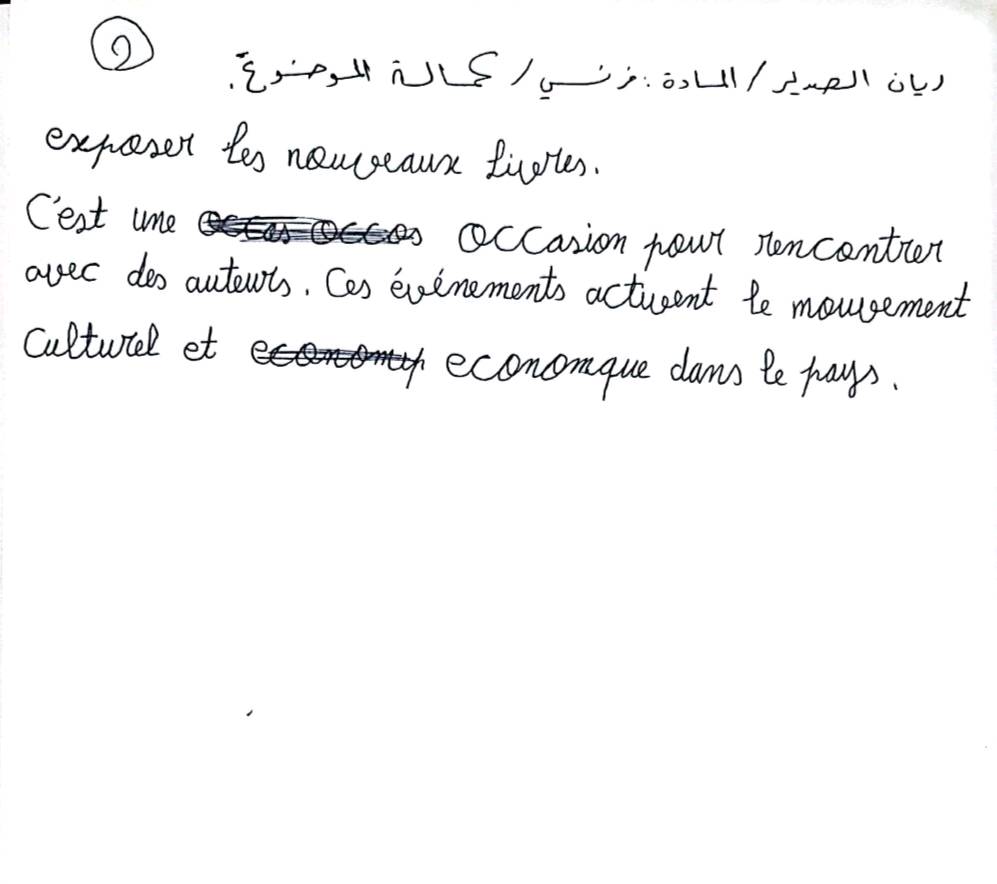 2
ريان الصدير / المادة: فرنسي / كمالة الموضوع.
exposer les nouveaux livres.
C'est une occasion pour rencontrer
avec des auteurs. Ces événements activent le mouvement
culturel et economque dans le pays.